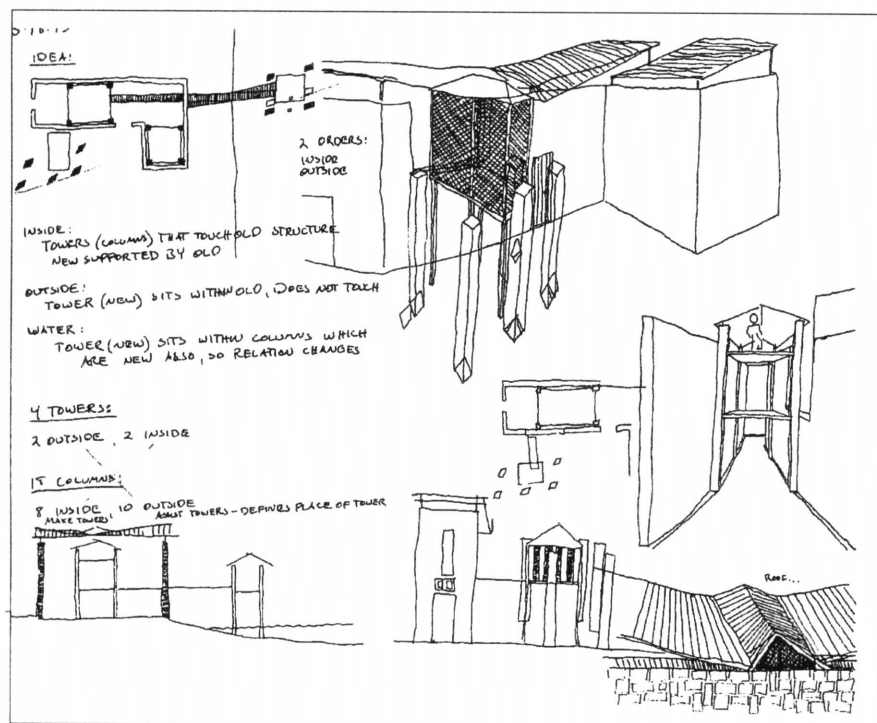 IDEA:
2 ORDERS:
INSIDE
OUTSIDE
INSIDE:
TOWERS (COLUMNS) THAT TOUCH OLD STRUCTURE
NEW SUPPORTED BY OLD
OUTSIDE:
TOWER (NEW) SITS WITHIN OLD, DOES NOT TOUCH
WATER:
TOWER (NEW) SITS WITHIN COLUMNS WHICH
ARE NEW ALSO, SO RELATION CHANGES
4 TOWERS:
2 OUTSIDE, 2 INSIDE
COLUMNS:
8 INSIDE, 10 OUTSIDE
MAKE TOWERS, TOWERS - DEFINES PLACE OF TOWER
ROOF...